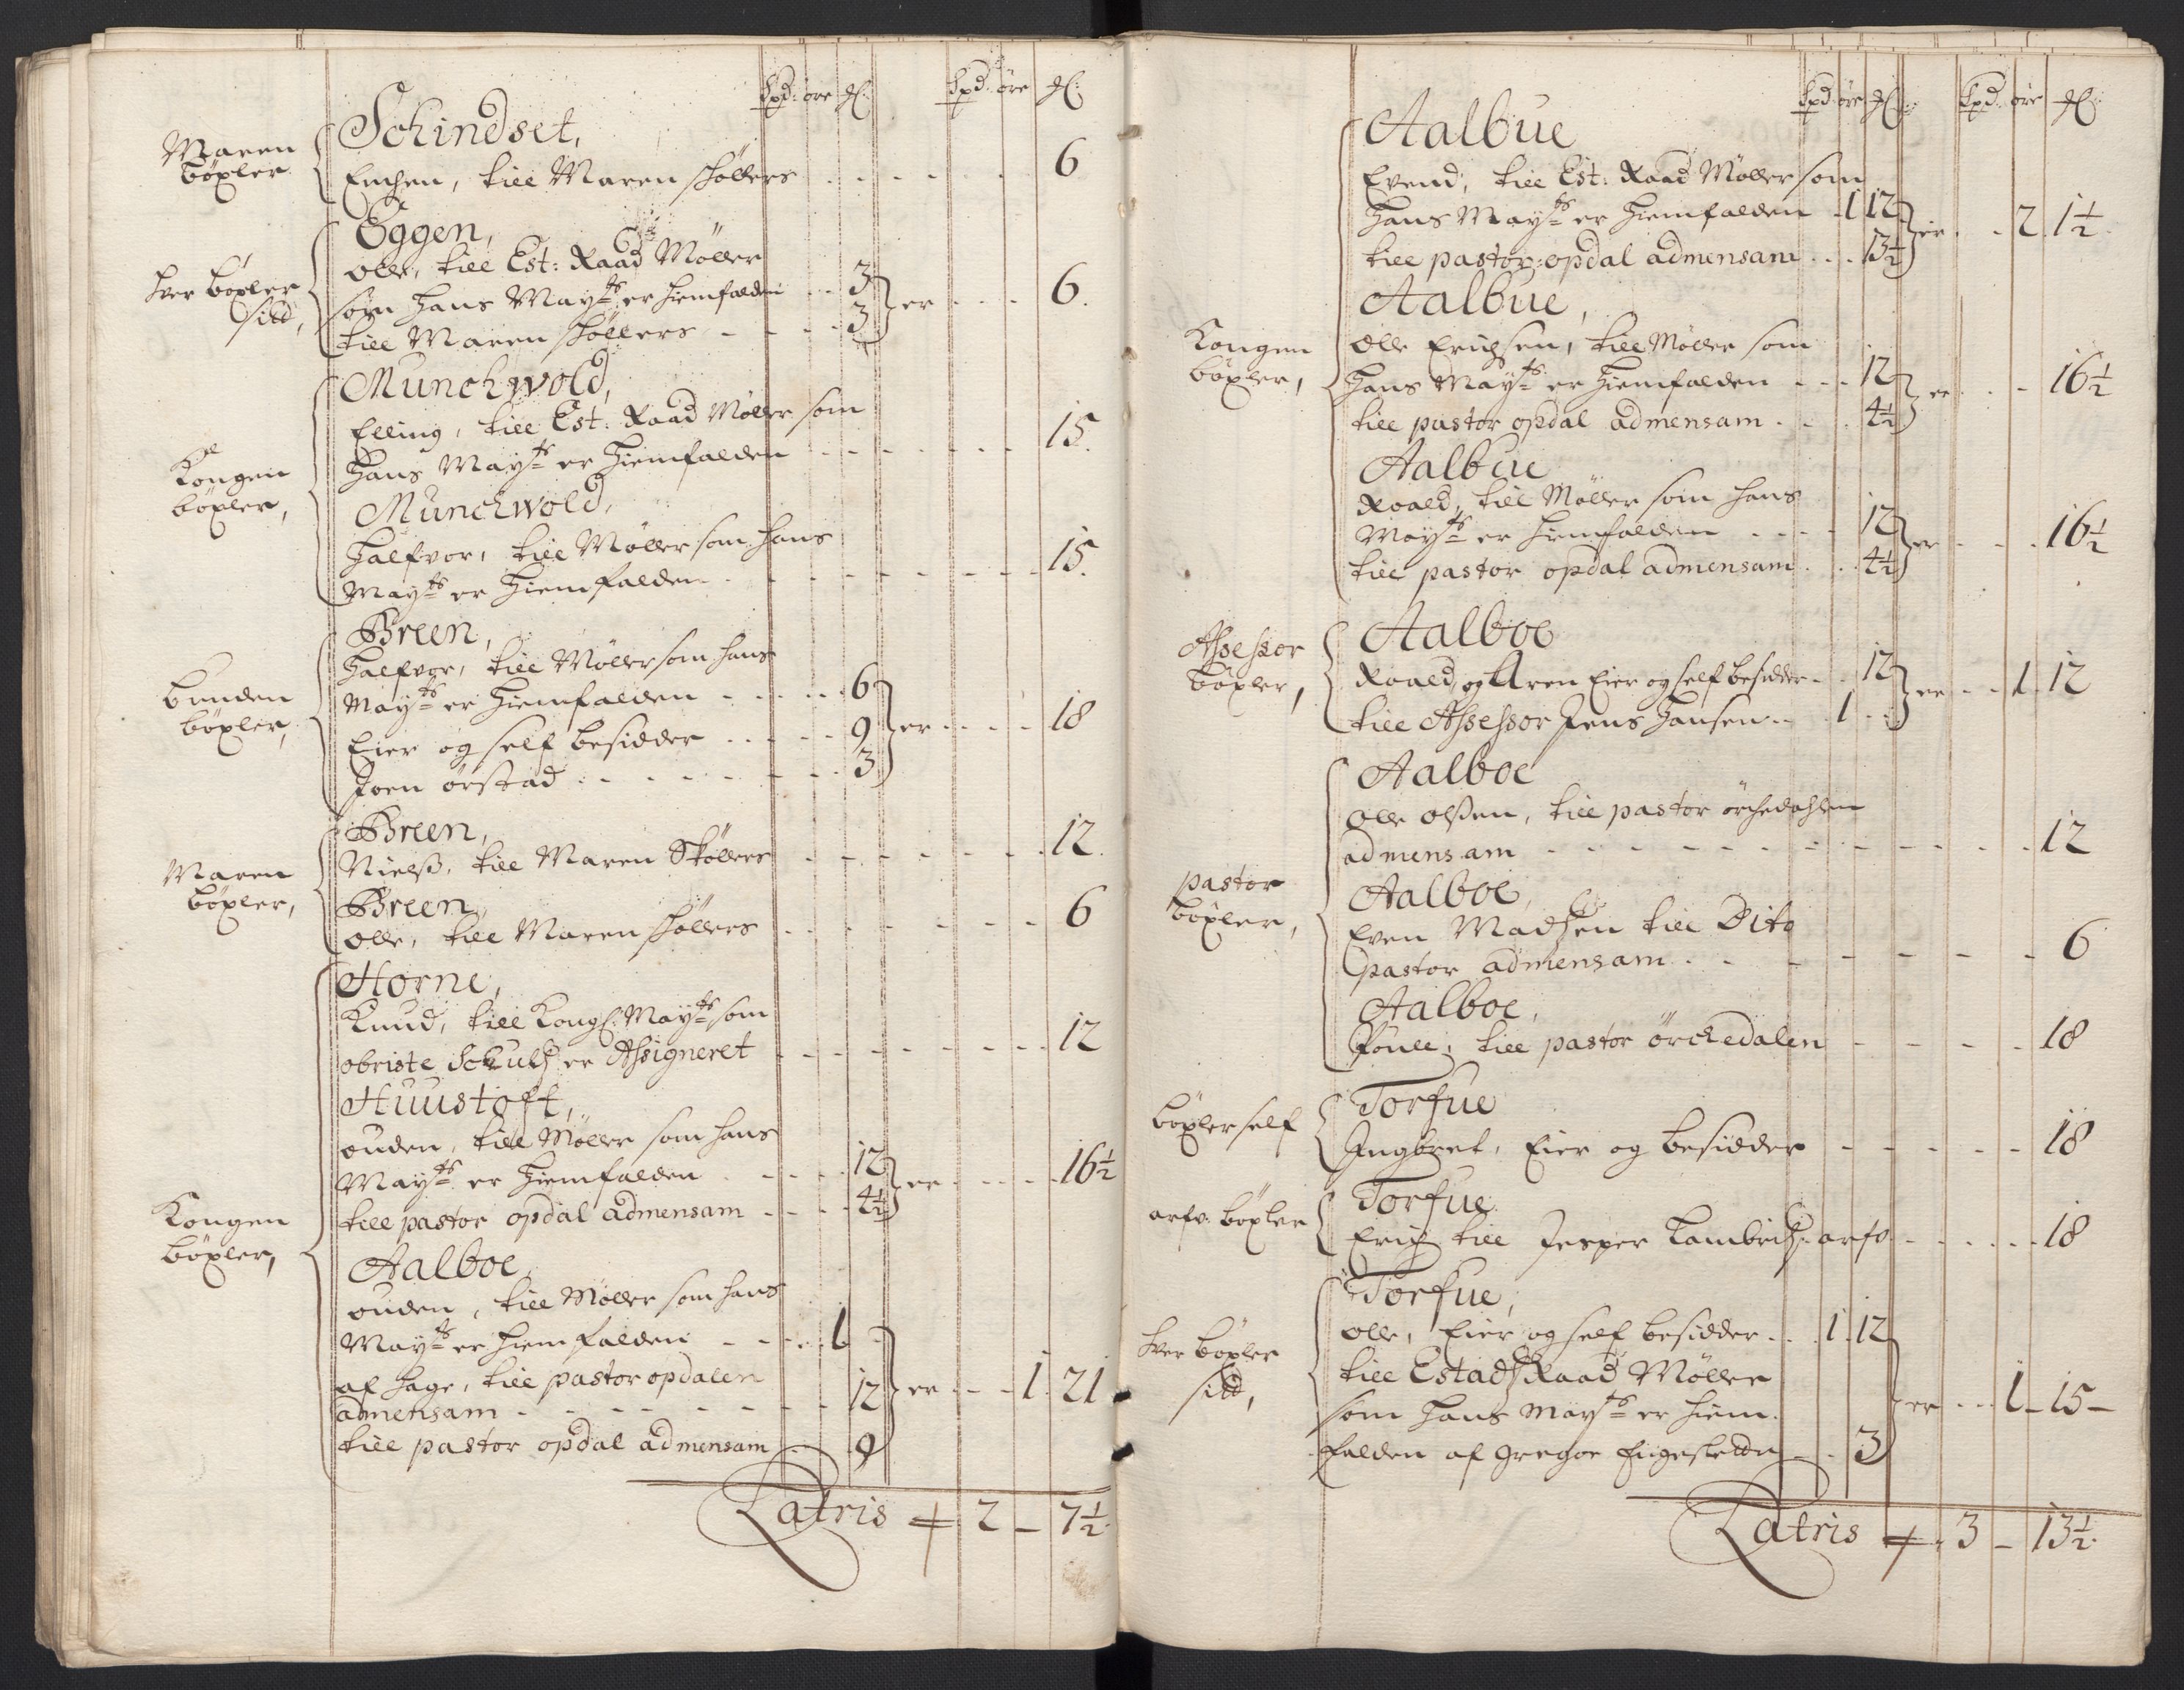 Spd: öre Ml: Spd: öre Ml:
Maren böxler
Schindset,
Erichen, till Maren skøllers 6
hver böxler sitt,
Eggen,
Olle, till Est: Raad Møller
som Hans Mayts er hiemfalden 3
till Maren skøllers 3 er 6.
Kongen böxler,
Munchwold,
Elling, till Est: Raad Møller som
Hans Mayts er Hiemfalden 15.
Munchwold,
Halfvor, till Møller som hans
Mayts er Hiemfalden 15.
bunden böxler,
Breen,
Halfvor, till Møller som hans
Mayts er Hiemfalden 6
Eier og self besidder 9 er 18
Joen örstad 3
Maren böxler,
Breen,
Nielß, till Maren Skøllers 12.
Breen,
Olle, till Maren skøllers 6
Kongen böxler,
Horne,
Knud, till Kongl: Mayts som
obriste Schults er Assigneret 12
Huustoft,
ouden, till Møller som hans
Mayts er Hiemfalden 12
till pastor opdal admensam 4½ er 16½
Aalboe,
ouden, till Møller som hans
Mayts er hiemfalden 1
af hage, till pastor opdalen
admensam 12 er 1 21
till pastor opdal admensam 9
Latris 2 - 7½
Spd: öre Ml: Spd: öre Ml:
Kongen böxler,
Aalbue
Evend, till Est: Raad Møller som
Hans Mayts er Hiemfalden 1 12
till pastor opdal admensam 13½ er 2 1½
Aalbue,
Olle Erichsen, till Møller som
Hans Mayts er Hiemfalden 12
till pastor opdal admensam 4½ er 16½
Aalbue
Roald, till Møller som hans
Mayts er hiemfalden 12
till pastor opdal admensam 4½ er 16½
Assessor böxler,
Aalboe
Roald, og Aren Eier og self besidder 12
till Assessor Jens Hansen 1 er 1 12
pastor böxler,
Aalboe
Olle olßen, till pastor örchedahlen
admensam 12
Aalboe,
Even Madsen till Dito
pastor admensam 6
Aalboe,
Poull, till pastor örckedalen 18
böxler self
Torfue
Ingbret, Eier og besidder 18
arfv: böxler
Torfue
Erich till Jesper Lambrichs arfv 18
hver böxler sitt,
Torfue,
Olle, Eier og self besidder 1 12
till Estads Raad Møller
som Hans Mayts er hiem-
falden af Gregor 3 er 1 - 15 -
Latris 3 - 13½